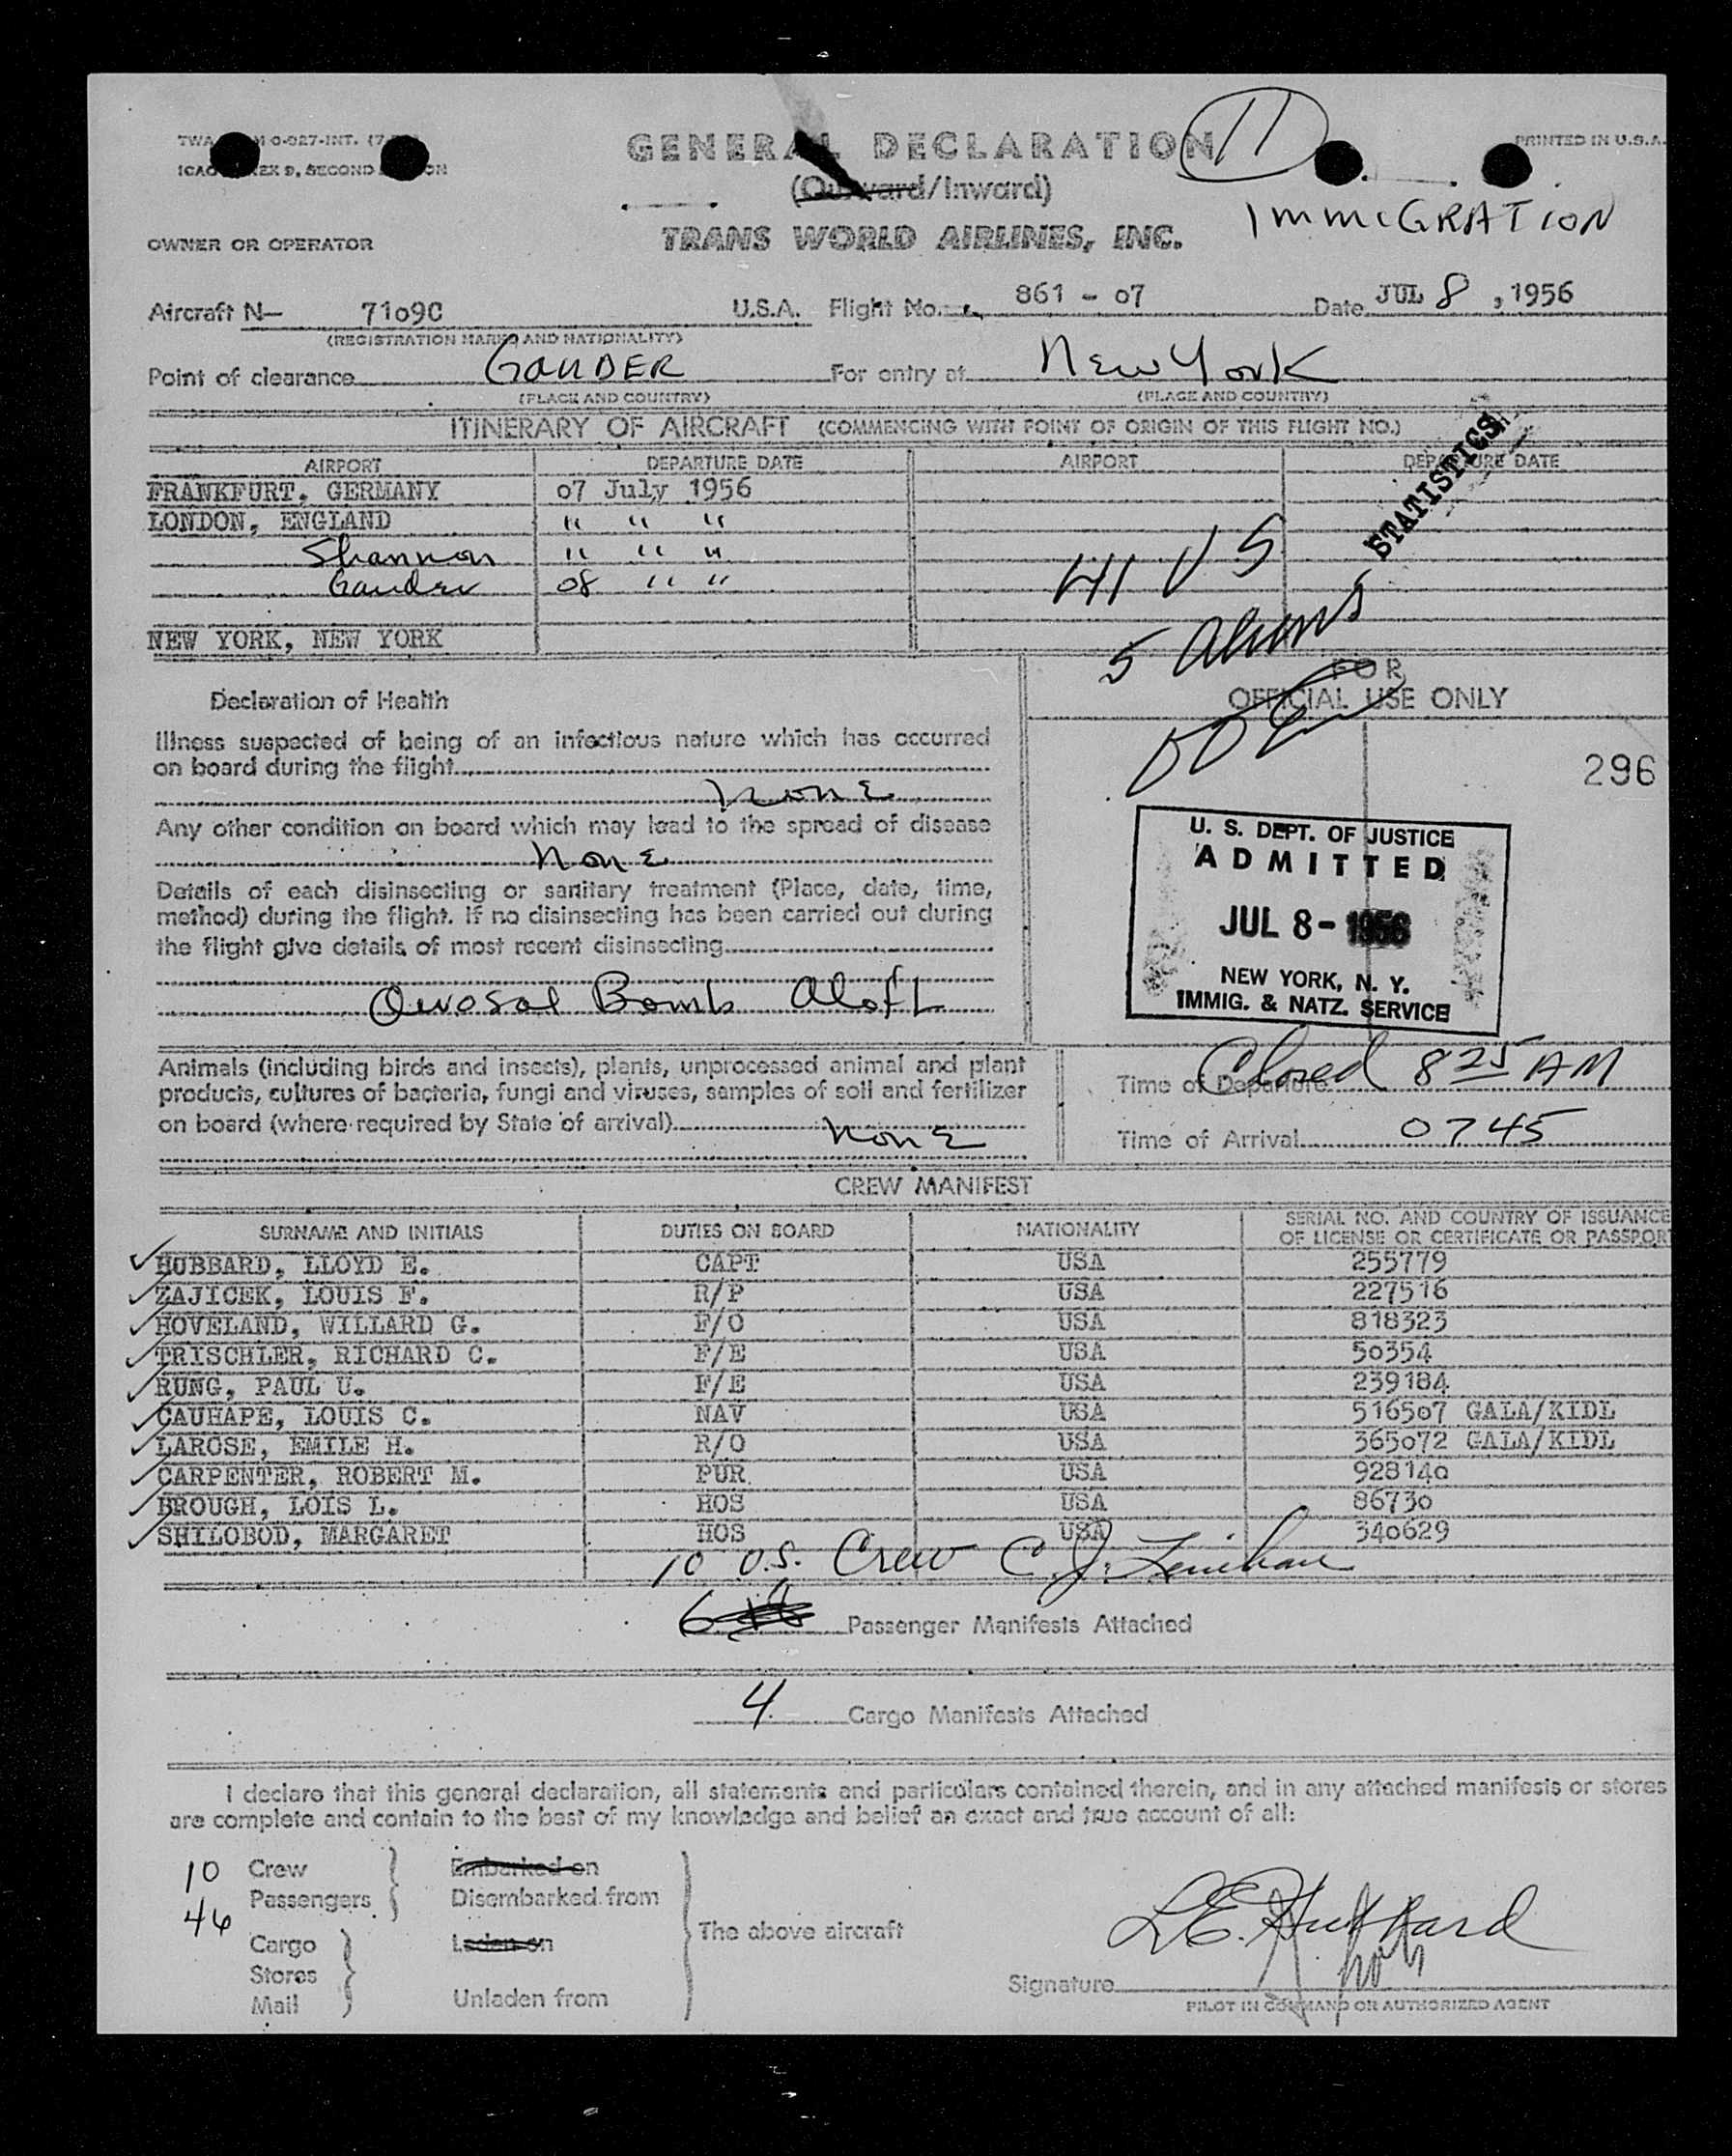 GENERAL DECLARATION
11
PRINTED IN U.S.A.
(Outward/Inward)
IMMIGRATION
OWNER OR OPERATOR TRANS WORLD AIRLINES, INC.
Aircraft N— 7109C U.S.A. Flight No. 861 - 07 Date JUL 8, 1956
(REGISTRATION MARKS AND NATIONALITY)
Point of clearance GANDER For entry at New York
(PLACE AND COUNTRY) (PLACE AND COUNTRY)
ITINERARY OF AIRCRAFT (COMMENCING WITH POINT OF ORIGIN OF THIS FLIGHT NO.)
AIRPORT DEPARTURE DATE AIRPORT DEPARTURE DATE
STATISTICS
FRANKFURT, GERMANY 07 July 1956
LONDON, ENGLAND " " "
Shannon " " "
Gander 08 " "
41 US
5 Aliens
NEW YORK, NEW YORK
FOR
OFFICIAL USE ONLY
296
Declaration of Health
Illness suspected of being of an infectious nature which has occurred
on board during the flight
None
Any other condition on board which may lead to the spread of disease
None
Details of each disinsecting or sanitary treatment (Place, date, time,
method) during the flight. If no disinsecting has been carried out during
the flight give details of most recent disinsecting
Bomb Aloft
U. S. DEPT. OF JUSTICE
ADMITTED
JUL 8 - 1956
NEW YORK, N. Y.
IMMIG. & NATZ. SERVICE
Animals (including birds and insects), plants, unprocessed animal and plant
products, cultures of bacteria, fungi and viruses, samples of soil and fertilizer
on board (where required by State of arrival)
None
Time of Departure Closed 8 25 AM
Time of Arrival 0745
CREW MANIFEST
SURNAME AND INITIALS DUTIES ON BOARD NATIONALITY SERIAL NO. AND COUNTRY OF ISSUANCE
OF LICENSE OR CERTIFICATE OR PASSPORT
HUBBARD, LLOYD E. CAPT USA 255779
ZAJICEK, LOUIS F. R/P USA 227516
HOVELAND, WILLARD G. F/O USA 818323
TRISCHLER, RICHARD C. F/E USA 50354
RUNG, PAUL U. F/E USA 239184
CAUHAPE, LOUIS C. NAV USA 516507 GALA/KIDL
LAROSE, EMILE H. R/O USA 365072 GALA/KIDL
CARPENTER, ROBERT M. PUR USA 928140
BROUGH, LOIS L. HOS USA 86730
SHILOBOD, MARGARET HOS USA 340629
10 U.S. Crew C. J. Lenihan
6 Passenger Manifests Attached
4 Cargo Manifests Attached
I declare that this general declaration, all statements and particulars contained therein, and in any attached manifests or stores
are complete and contain to the best of my knowledge and belief an exact and true account of all:
10 Crew Embarked on
46 Passengers Disembarked from
The above aircraft
Cargo Laden on
Stores
Mail Unladen from
L.E. Hubbard
Signature
PILOT IN COMMAND OR AUTHORIZED AGENT